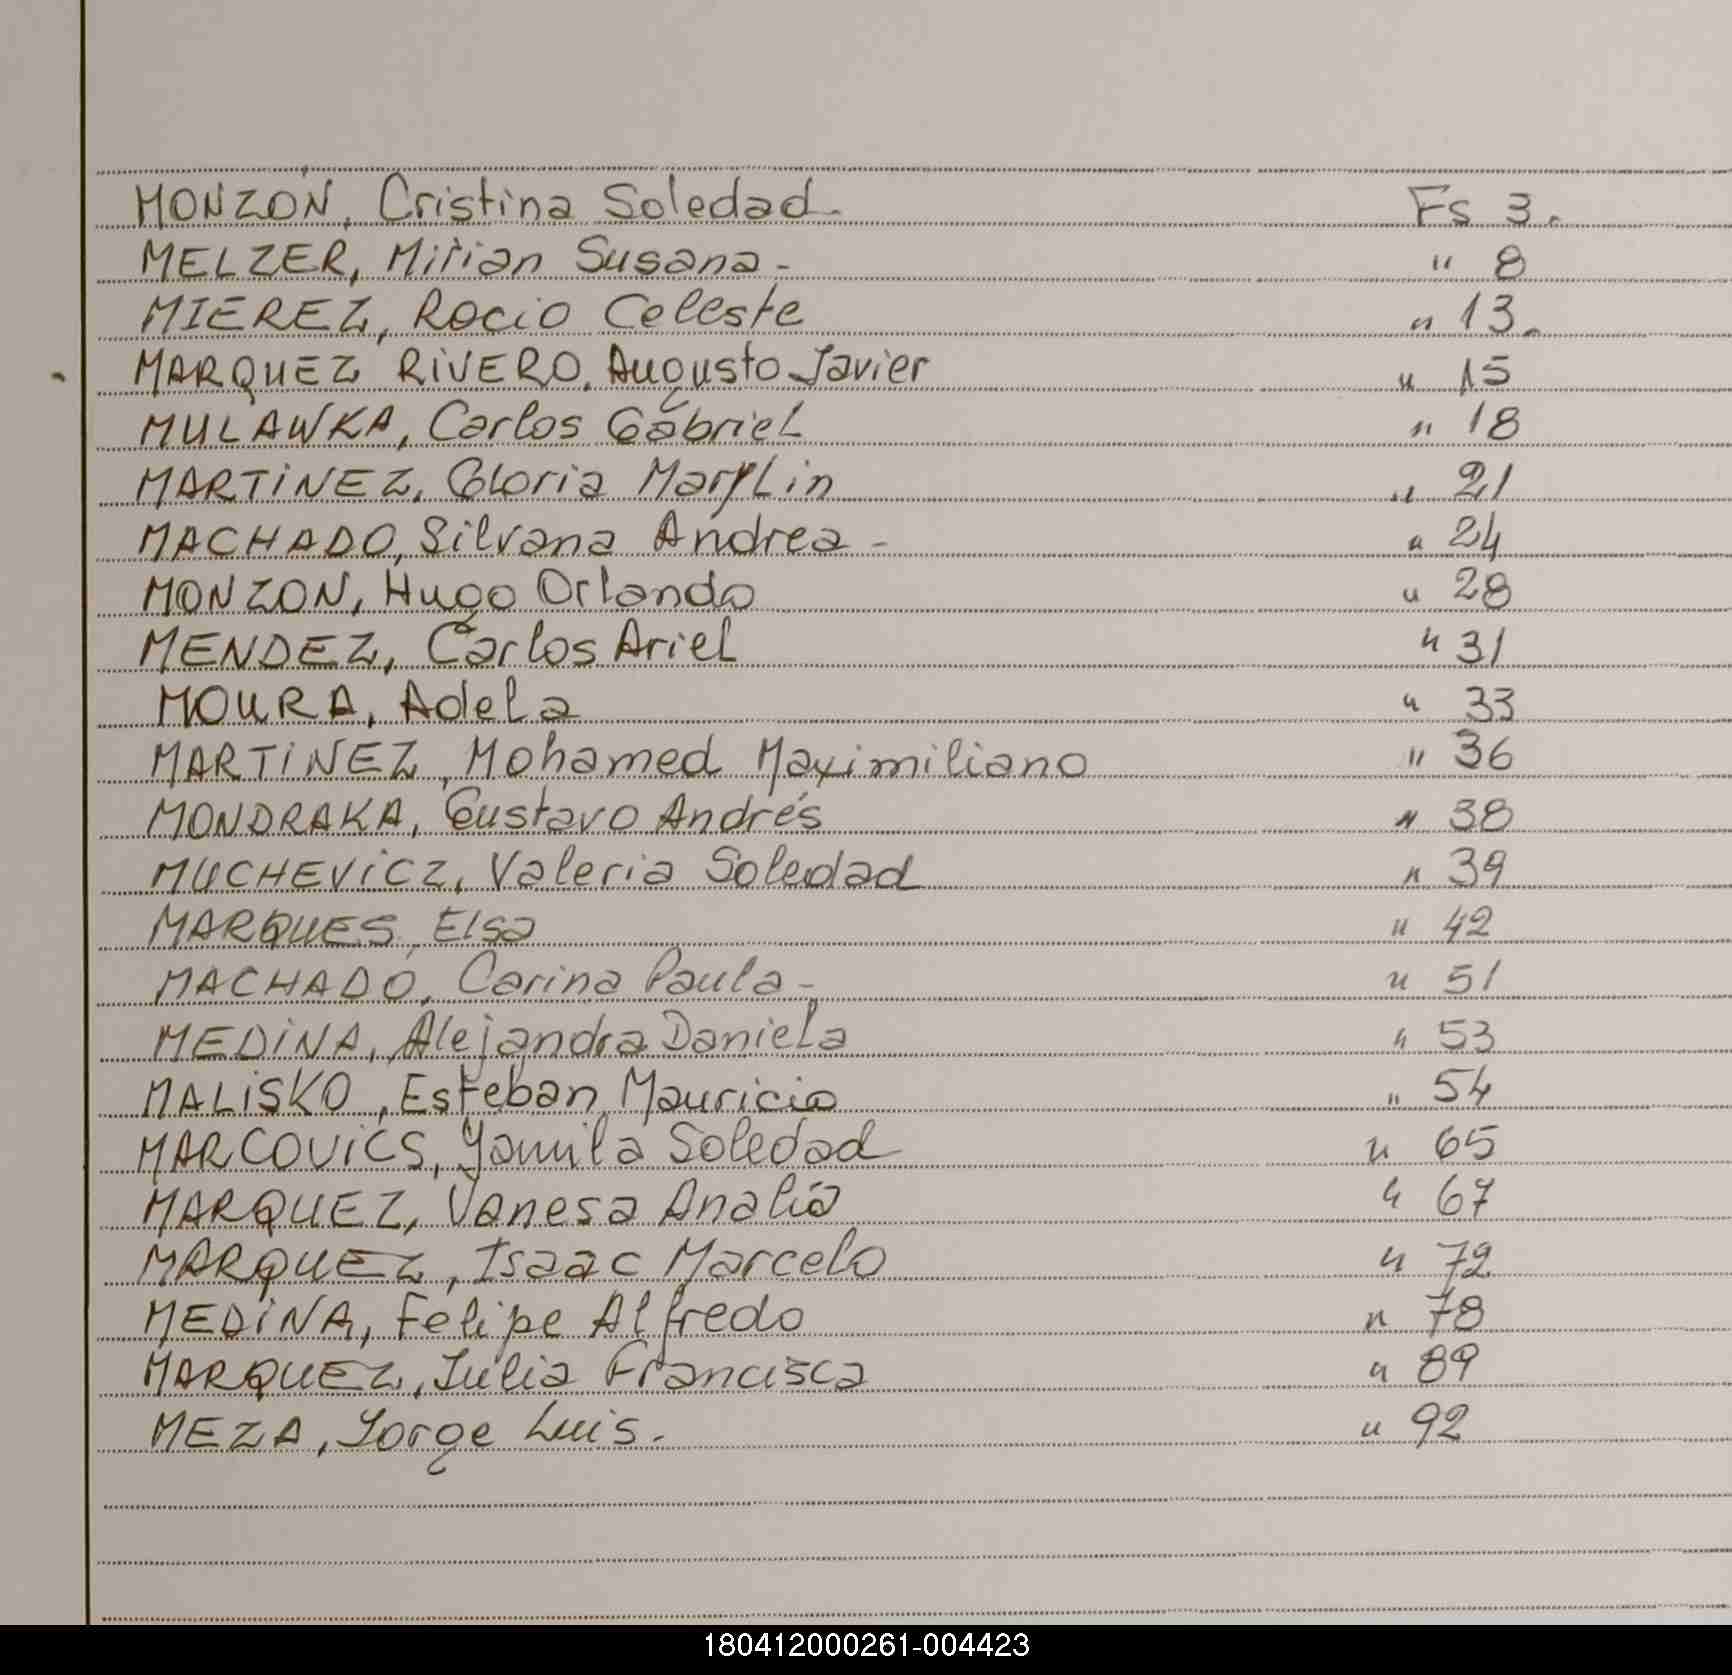 MONZON, Cristina Soledad. Fs 3.
MELZER, Mirian Susana - " 8
MIEREZ, Rocio Celeste " 13.
MARQUEZ RIVERO, Augusto Javier " 15
MULAWKA, Carlos Gabriel " 18
MARTINEZ, Gloria Marylin " 21
MACHADO, Silvana Andrea - " 24
MONZON, Hugo Orlando " 28
MENDEZ, Carlos Ariel " 31
MOURA, Adela " 33
MARTINEZ, Mohamed Maximiliano " 36
MONDRAKA, Gustavo Andrés " 38
MUCHEVICZ, Valeria Soledad " 39
MARQUES, Elsa " 42
MACHADO, Carina Paula - " 51
MEDINA, Alejandra Daniela " 53
MALISKO, Esteban Mauricio " 54
MARCOVICS, Yamila Soledad " 65
MARQUEZ, Vanesa Analía " 67
MARQUEZ, Isaac Marcelo " 72
MEDINA, Felipe Alfredo " 78
MARQUEZ, Julia Francisca " 89
MEZA, Jorge Luis. " 92
180412000261-004423